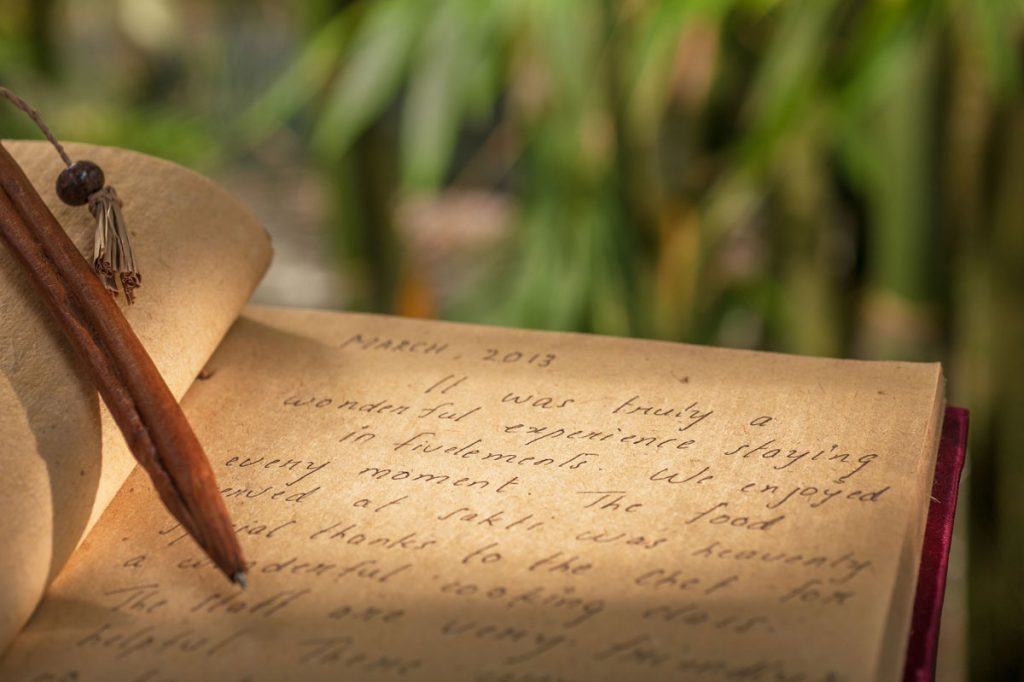 MARCH, 2013
It was truly a
wonderful experience staying
in fivelements. We enjoyed
every moment. The food
served at sakti was heavenly
special thanks to the chef for
a wonderful cooking class.
The staff are very friendly
helpful There